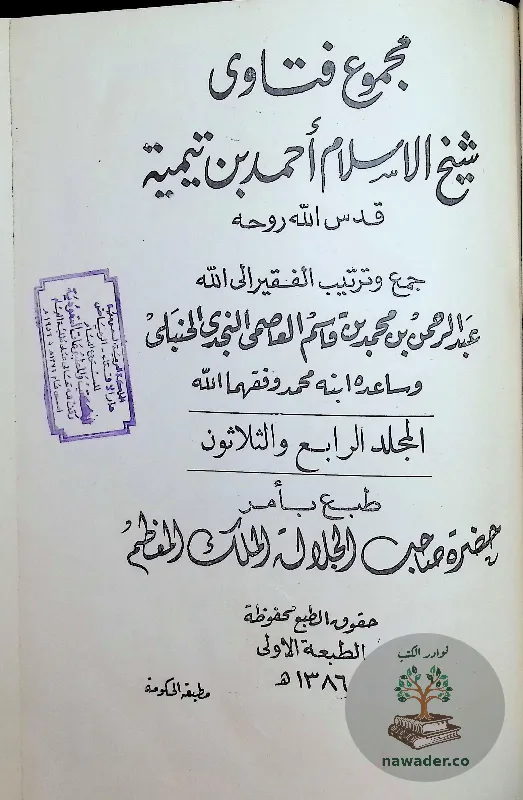 مجموع فتاوى
شيخ الإسلام أحمد بن تيمية
قدس الله روحه
جمع وترتيب الفقير الى الله
عبد الرحمن بن محمد بن قاسم العاصمي النجدي الحنبلي
وساعده ابنه محمد وفقهما الله
المجلد الرابع والثلاثون
طبع بأمر
حضرة صاحب الجلالة الملك المعظم
حقوق الطبع محفوظة
الطبعة الاولى
١٣٨٦ هـ
مطبعة الحكومة
نوادر الكتب
nawader.co